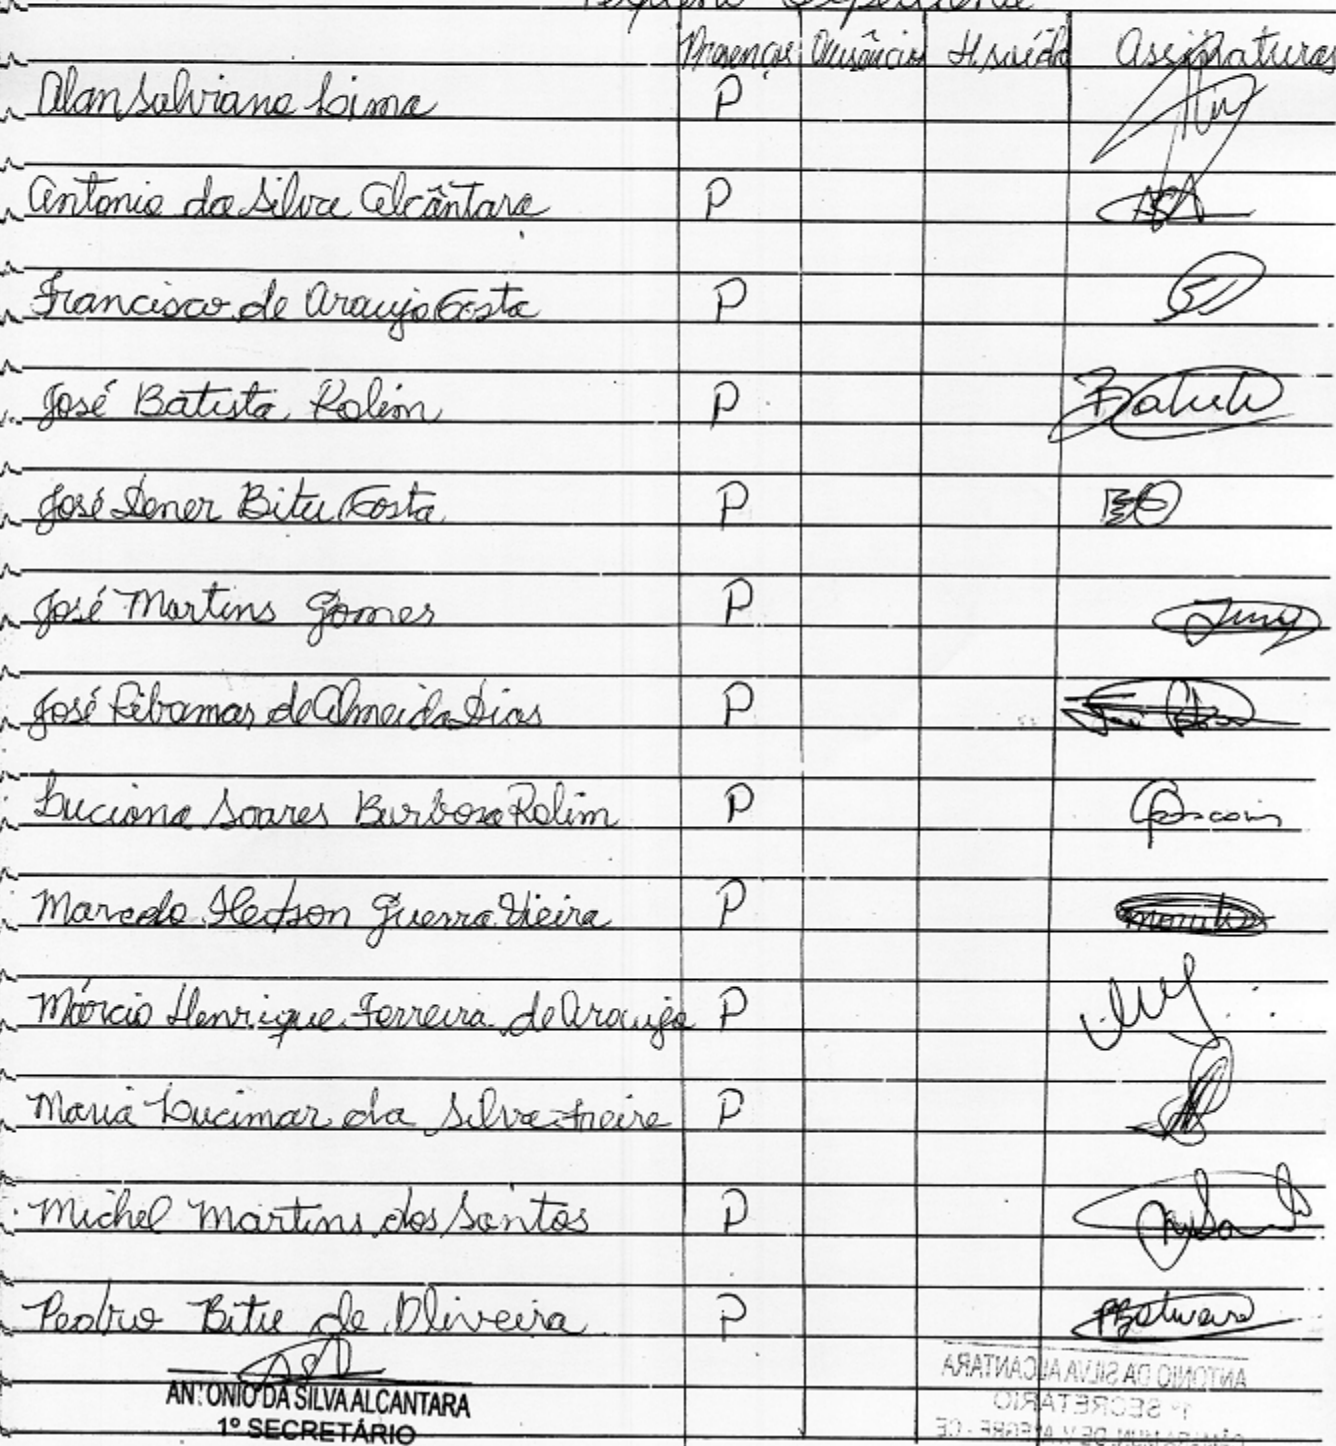 Pequeno Expediente
Presenças Ausências H. saída Assinaturas
Alan Salviano Lima P
Antonio da Silva Alcântara P
Francisco de Araujo Costa P
José Batista Rolim P Batista
José Iener Bitu Costa P
José Martins Gomes P
José Ribamar de Almeida Dias P
Luciana Soares Barbosa Rolim P
Marcelo Hedson Guerra Vieira P
Márcio Henrique Ferreira de Araujo P
Maria Lucimar da Silva Freire P
Michel Martins dos Santos P
Pedro Bitu de Oliveira P
ANTONIO DA SILVA ALCANTARA
1º SECRETÁRIO
ANTONIO DA SILVA ALCANTARA
1º SECRETÁRIO